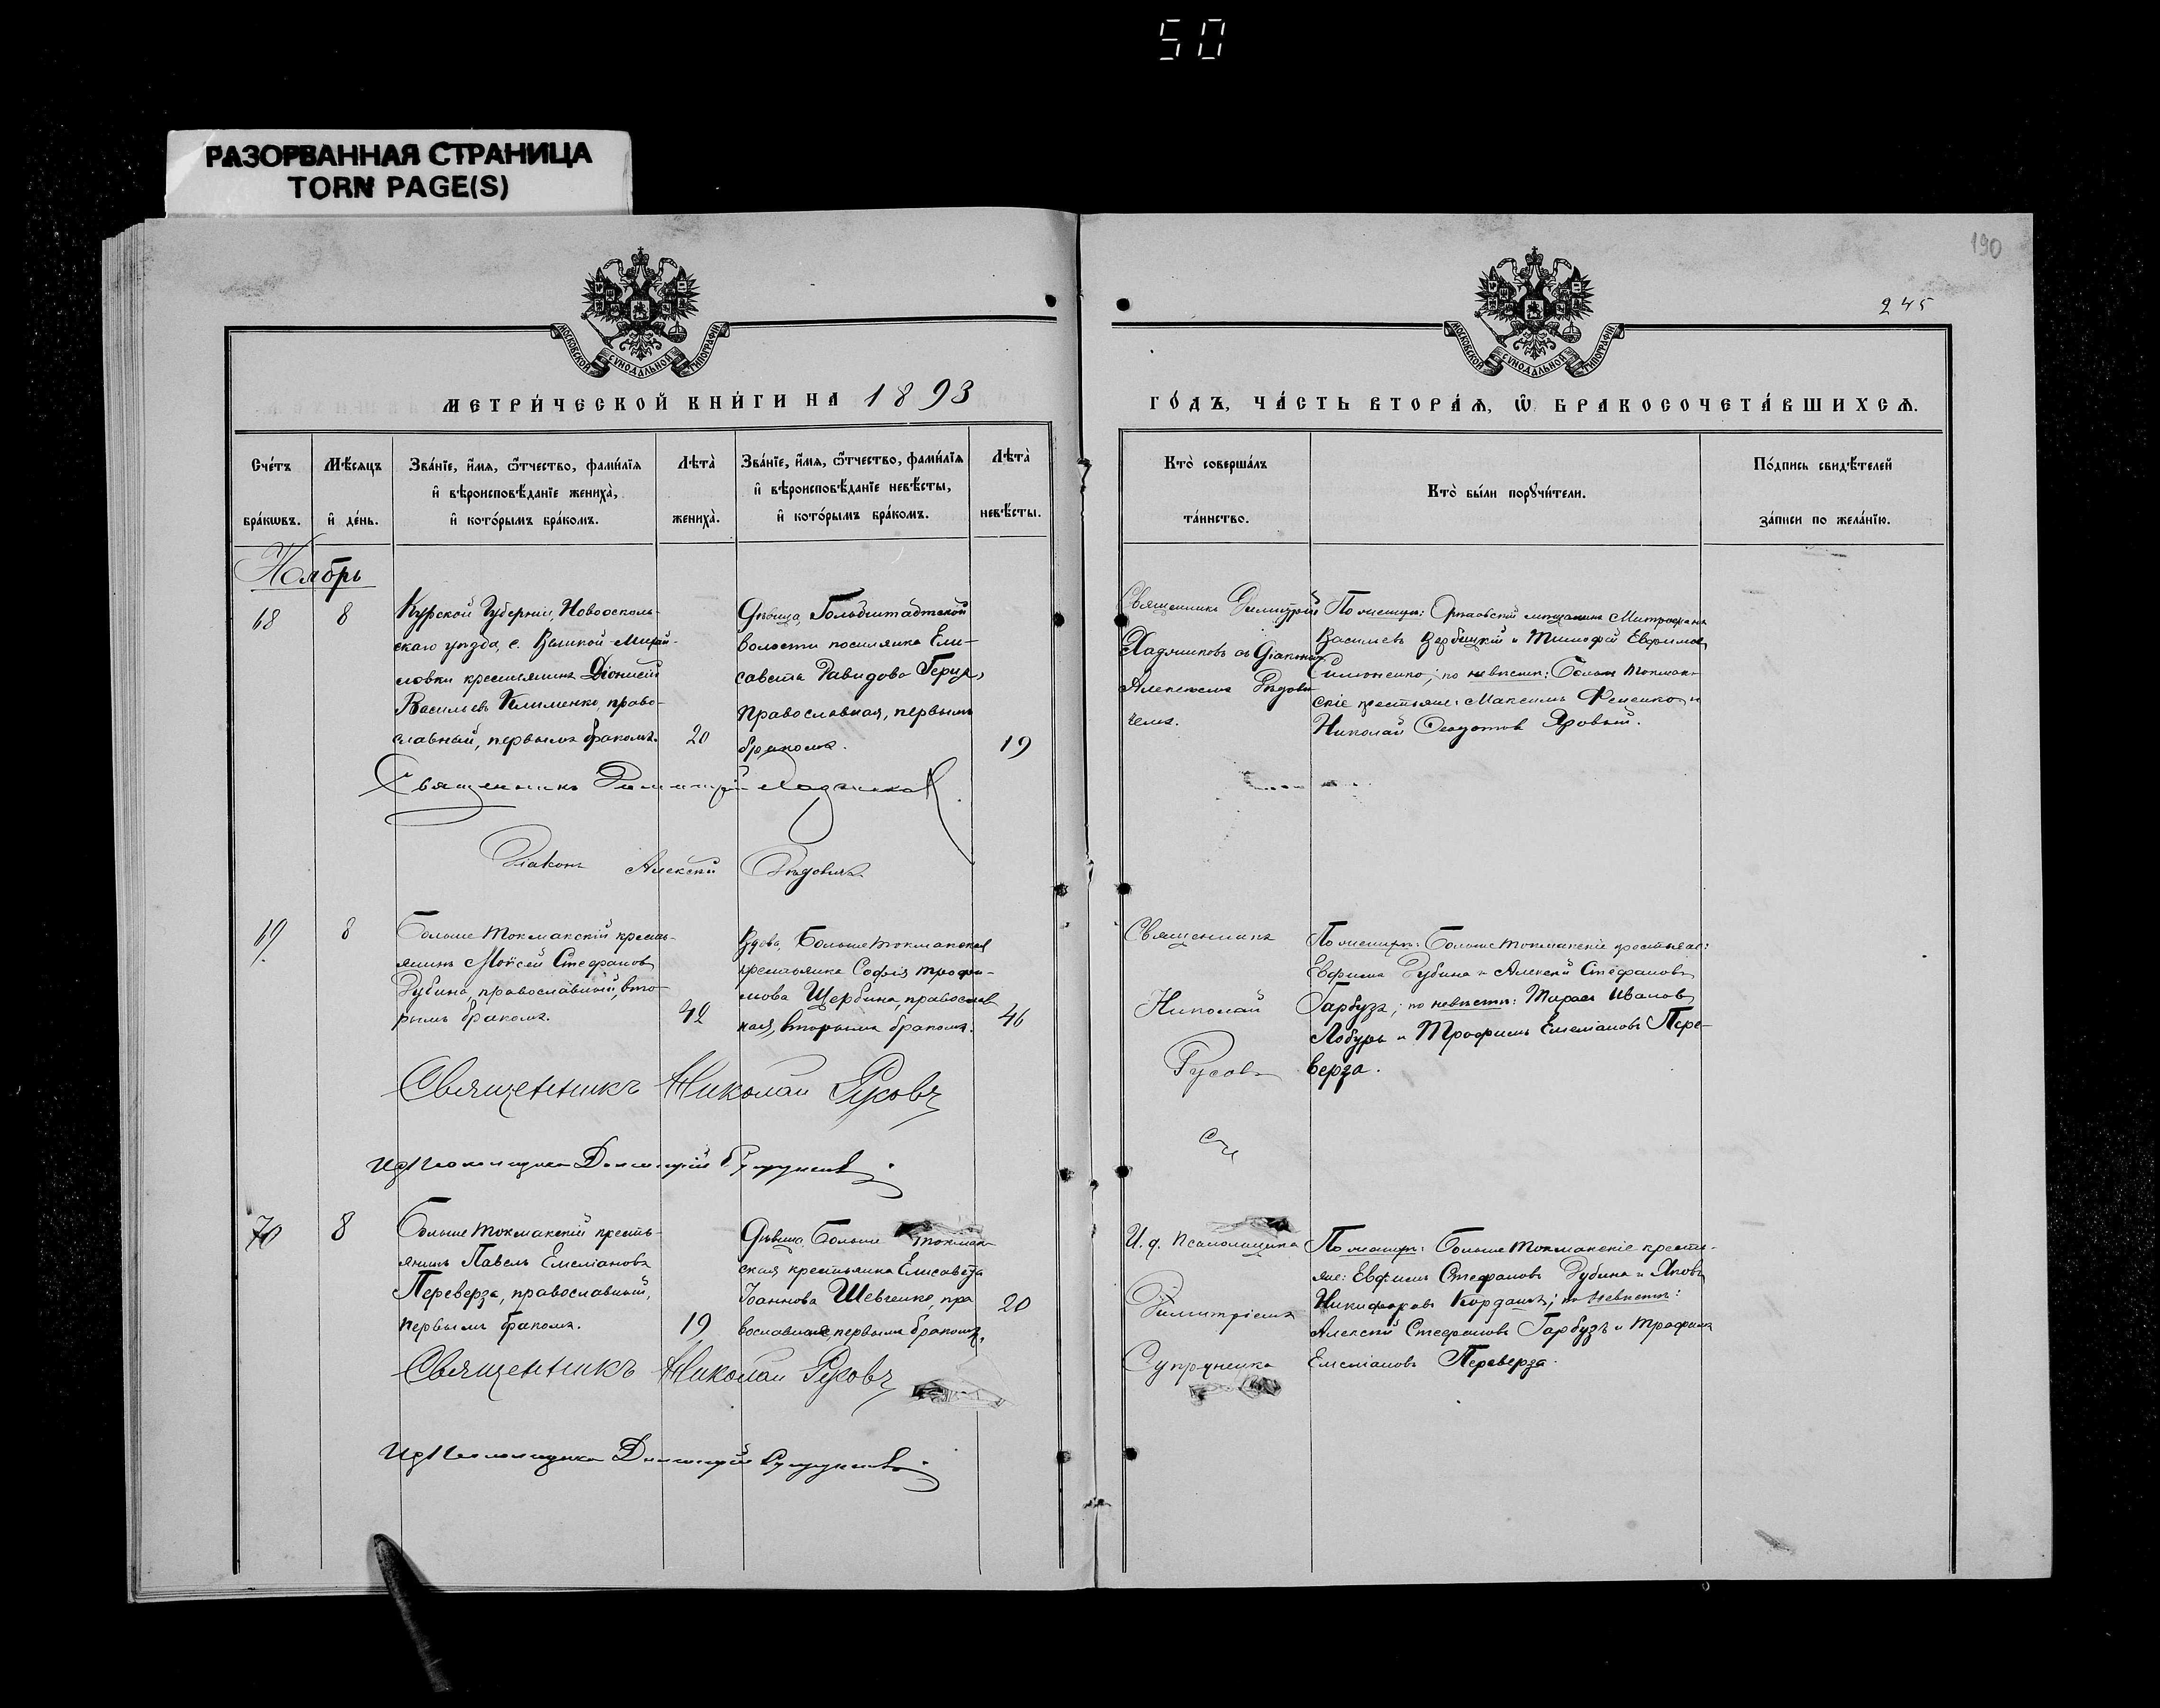 50
РАЗОРВАННАЯ СТРАНИЦА
TORN PAGE(S)
190
245
МОСКОВСКОЙ СѴНОДАЛЬНОЙ ТИПОГРАФІИ
МОСКОВСКОЙ СѴНОДАЛЬНОЙ ТИПОГРАФІИ
МЕТРИ́ЧЕСКОЙ КНИ́ГИ НА 1893
ГО́ДЪ, ЧА́СТЬ ВТОРА́Ѧ, Ѡ҆ БРАКОСОЧЕТА́ВШИХСѦ.
Сче́тъ
бра́кѡвъ.
Мѣ́сѧцъ
и҆ де́нь.
Зва́нїе, и҆́мѧ, ѻ҆́тчество, фами́лїѧ
и҆ вѣроисповѣ́данїе жениха̀,
и҆ кото́рымъ бра́комъ.
Лѣ́та
жениха̀.
Зва́нїе, и҆́мѧ, ѻ҆́тчество, фами́лїѧ
и҆ вѣроисповѣ́данїе невѣ́сты,
и҆ кото́рымъ бра́комъ.
Лѣ́та
невѣ́сты.
Кто̀ соверша́лъ
та́инство.
Кто̀ бы́ли порꙋчи́тели.
По́дпись свидѣ́телей
за́писи по жела́нїю.
Ноябрь
68
8
Курской Губерніи, Новоосколь-
скаго уѣзда, с. Великой-Михай-
ловки крестьянинъ Діонисій
Васильевъ Клименко, право-
славный, первымъ бракомъ.
20
Дѣвица, Гольбштадтской
волости поселянка Ели-
савета Давидова Герцъ,
православная, первымъ
бракомъ.
19
Священникъ Димитрій
съ Діакономъ
Алексіемъ Дѣдови-
чемъ.
По женихѣ: мѣщанинъ Митрофанъ
Васильевъ Вербицкій и Тимофей Евфимовъ
по невѣстѣ: Больше Токмак-
скіе крестьяне: Максимъ Фененко и
Николай Яровый.
Священникъ Димитрій
Діаконъ Алексій Дѣдовичъ
69
8
Больше Токмакскій кресть-
янинъ Моѵсей Стефановъ
Дубина, православный, вто-
рымъ бракомъ.
42
Вдова, Больше Токмакская
крестьянка Софія Трофи-
мова Щербина, православ
ная, вторымъ бракомъ.
46
Священникъ
Николай
Русовъ
По женихѣ: Больше Токмакскіе крестьяне:
Евфимъ Дубина и Алексій Стефановъ
Гарбузъ; по невѣстѣ: Тарасъ Ивановъ
Лобуръ и Трофимъ Емеліановъ Пере-
верза.
Священникъ Николай Русовъ
ид Псаломщика Димитрій Супруненко
70
8
Больше Токмакскій кресть-
янинъ Павелъ Емеліановъ
Переверза, православный,
первымъ бракомъ.
19
Дѣвица Больше Токмак-
ская крестьянка Елисавета
Іоаннова Шевченко, пра
вославная, первымъ бракомъ.
20
И. д. Псаломщика
Димитріемъ
Супруненко
По женихѣ: Больше Токмакскіе кресть-
яне: Евфимъ Стефановъ Дубина и Яковъ
Никифоровъ Корданъ; по невѣстѣ:
Алексій Стефановъ Гарбузъ и Трофимъ
Емеліановъ Переверза.
Священникъ Николай Русовъ
ид Псаломщика Димитрій Супруненко